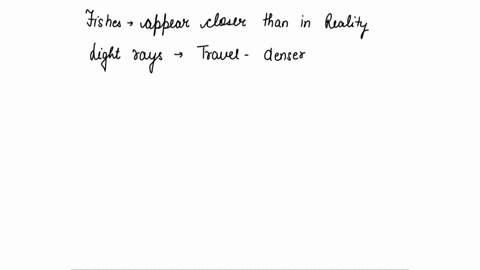 Fishes → appear closer than in Reality
Light rays → Travel - denser